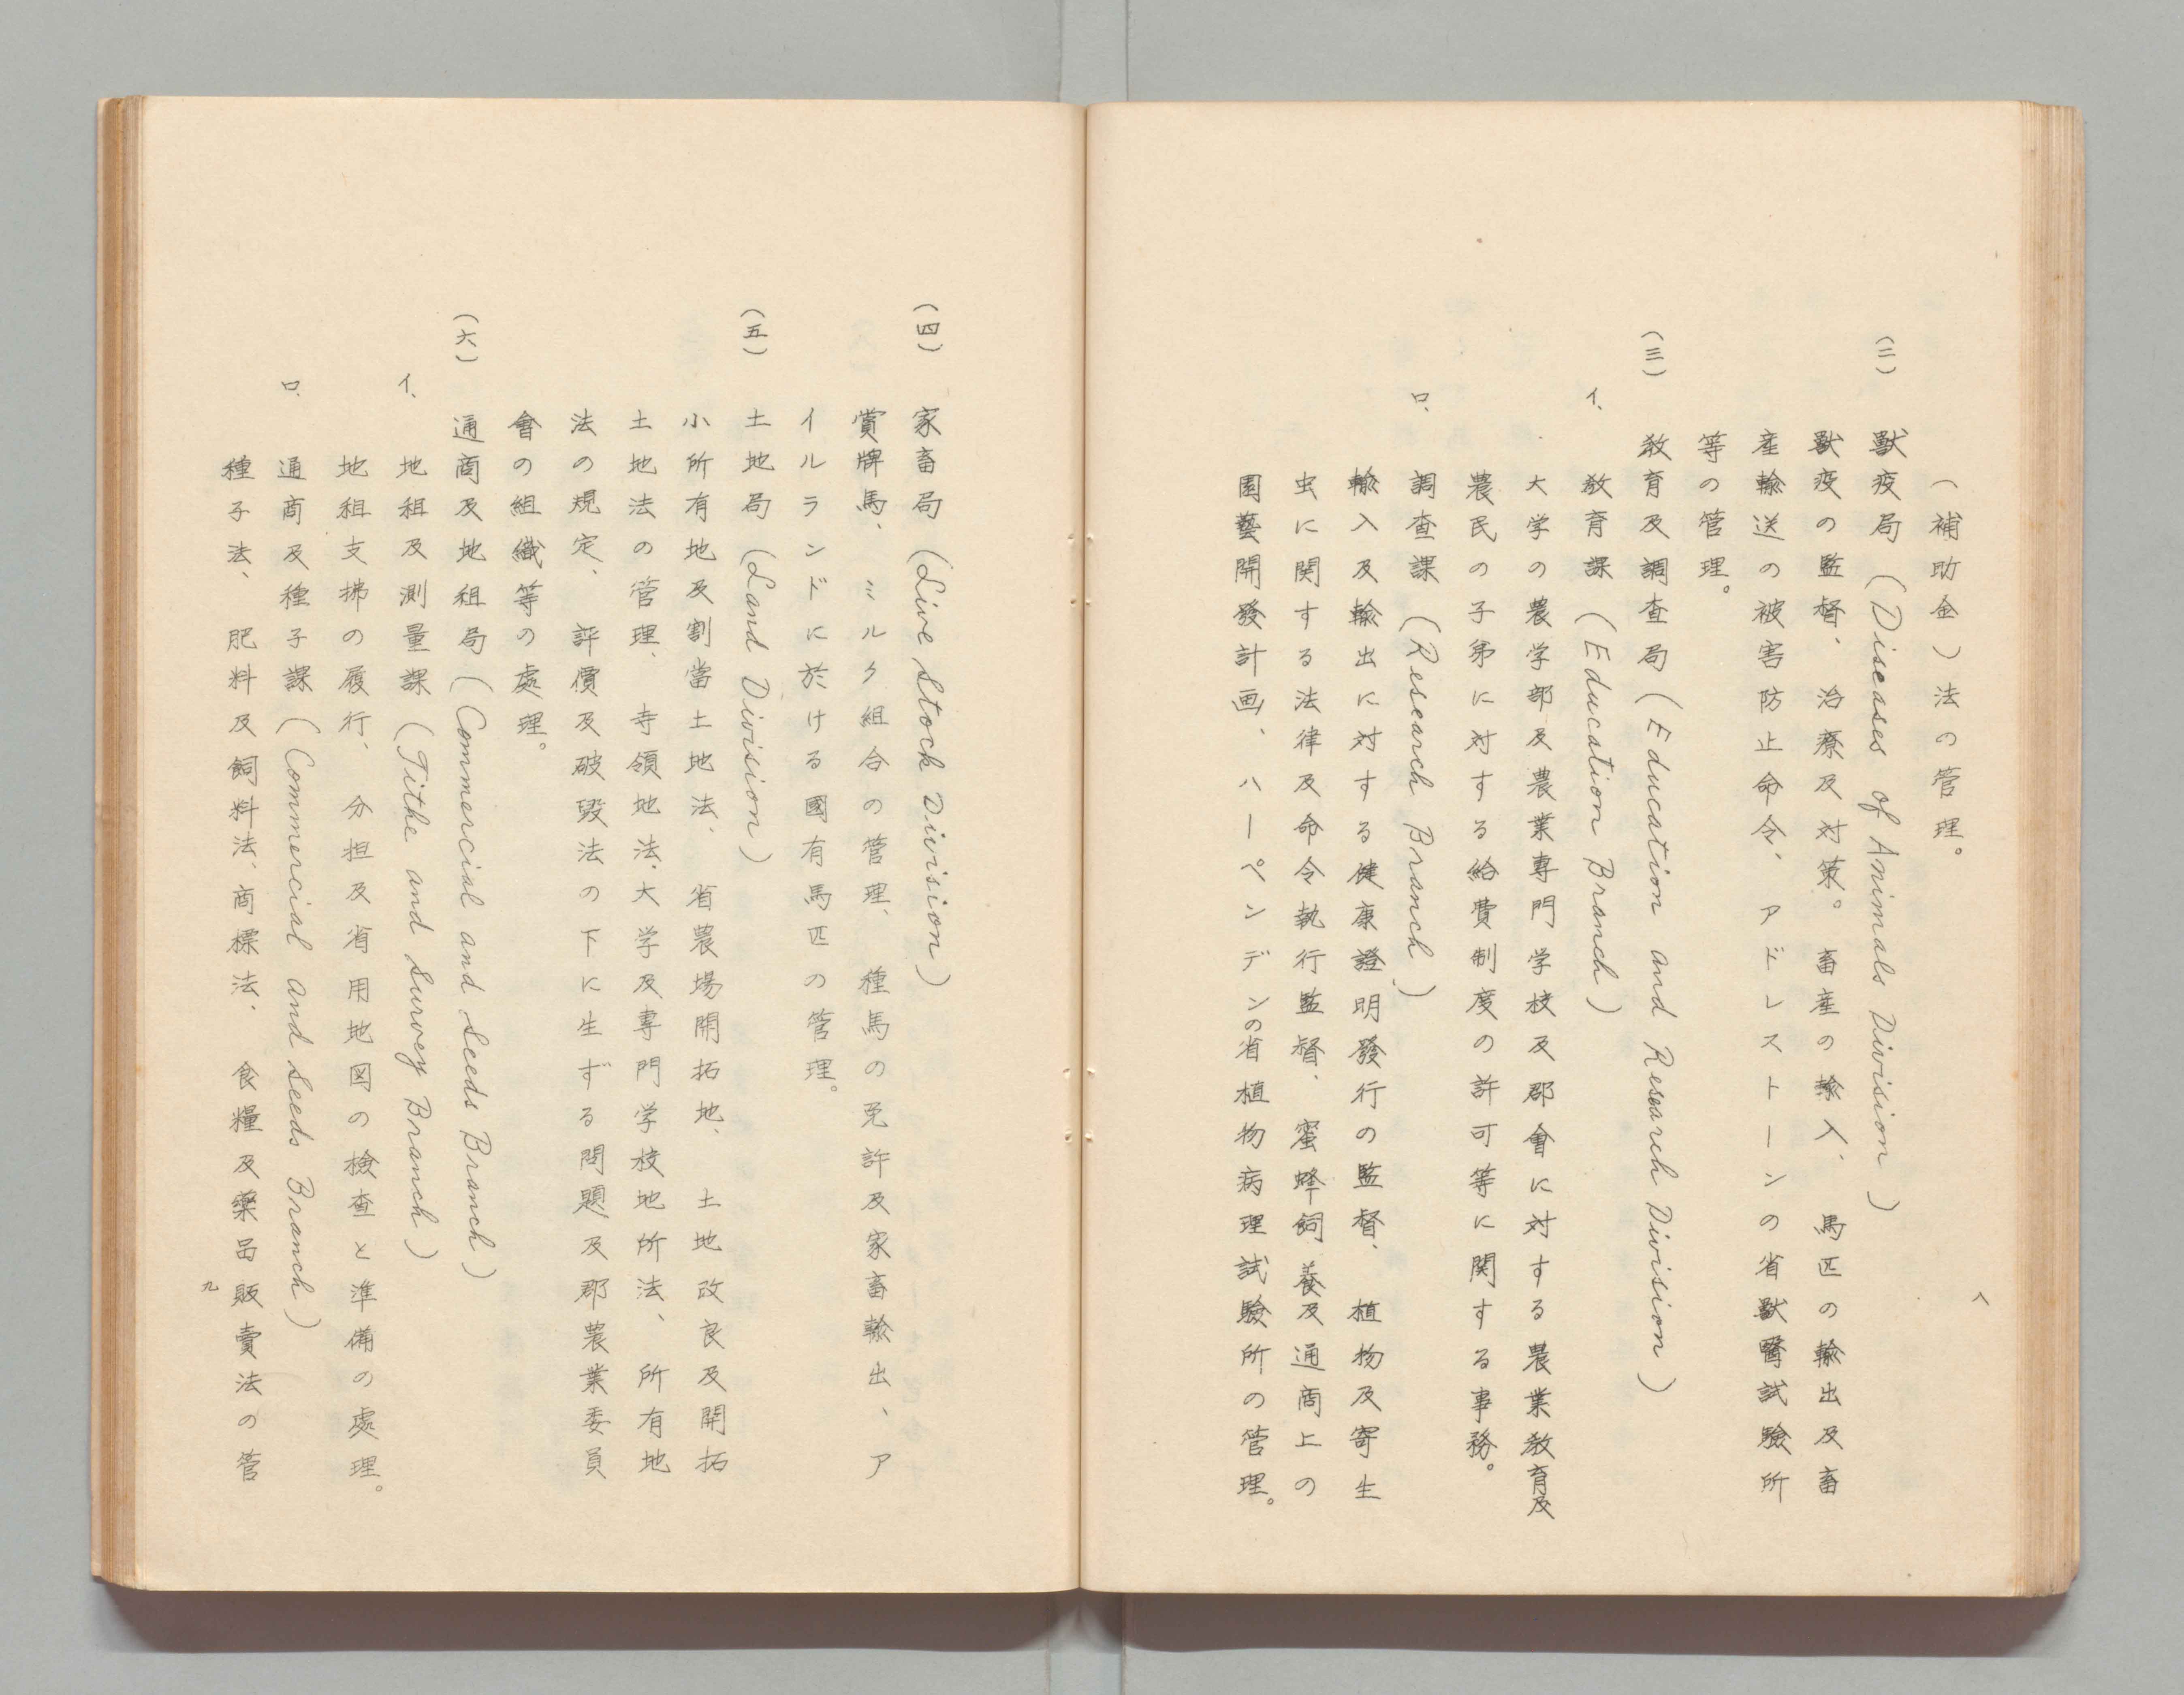 八
(補助金)法の管理。
(二) 獸疫局 (Diseases of Animals Division)
獸疫の監督、治療及対策。畜産の輸入、馬匹の輸出及畜
産輸送の被害防止命令、アドレストーンの省獸醫試驗所
等の管理。
(三) 教育及調査局 (Education and Research Division)
イ. 教育課 (Education Branch)
大学の農学部及農業專門学校及郡會に対する農業教育及
農民の子弟に対する給費制度の許可等に関する事務。
ロ. 調査課 (Research Branch)
輸入及輸出に対する健康證明發行の監督、植物及寄生
虫に関する法律及命令執行監督、蜜蜂飼養及通商上の
園藝開發計画、ハーペンデンの省植物病理試驗所の管理。
(四) 家畜局 (Live Stock Division)
賞牌馬、ミルク組合の管理、種馬の免許及家畜輸出、ア
イルランドに於ける國有馬匹の管理。
(五) 土地局 (Land Division)
小所有地及割當土地法、省農場開拓地、土地改良及開拓
土地法の管理、寺領地法、大学及專門学校地所法、所有地
法の規定、評價及破毀法の下に生ずる問題及郡農業委員
會の組織等の處理。
(六) 通商及地租局 (Commercial and Seeds Branch)
イ. 地租及測量課 (Tithe and Survey Branch)
地租支拂の履行、分担及省用地図の檢査と準備の處理。
ロ. 通商及種子課 (Commercial and Seeds Branch)
種子法、肥料及飼料法、商標法、食糧及藥品販賣法の管
九